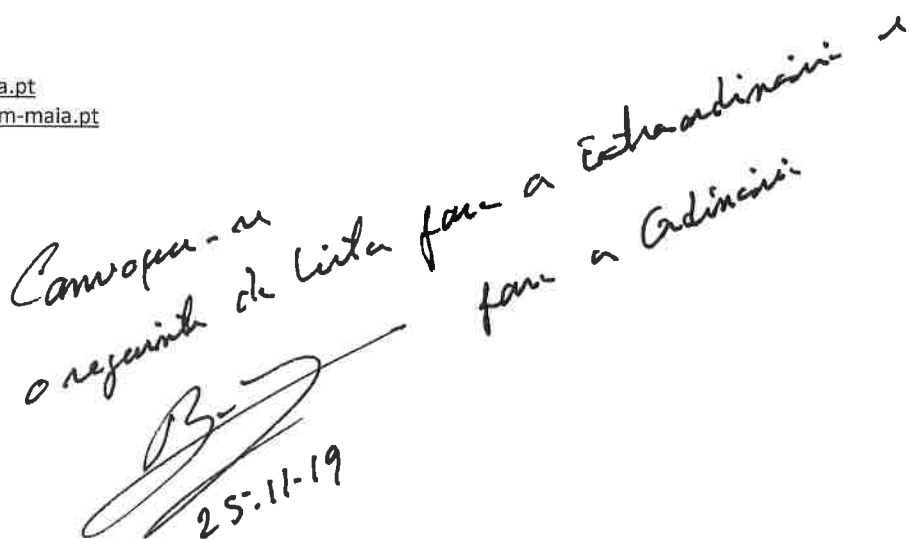 a.pt
m-maia.pt
Convoque-se
o seguinte da lista para a Extraordinária e
para a Ordinária
25.11.19